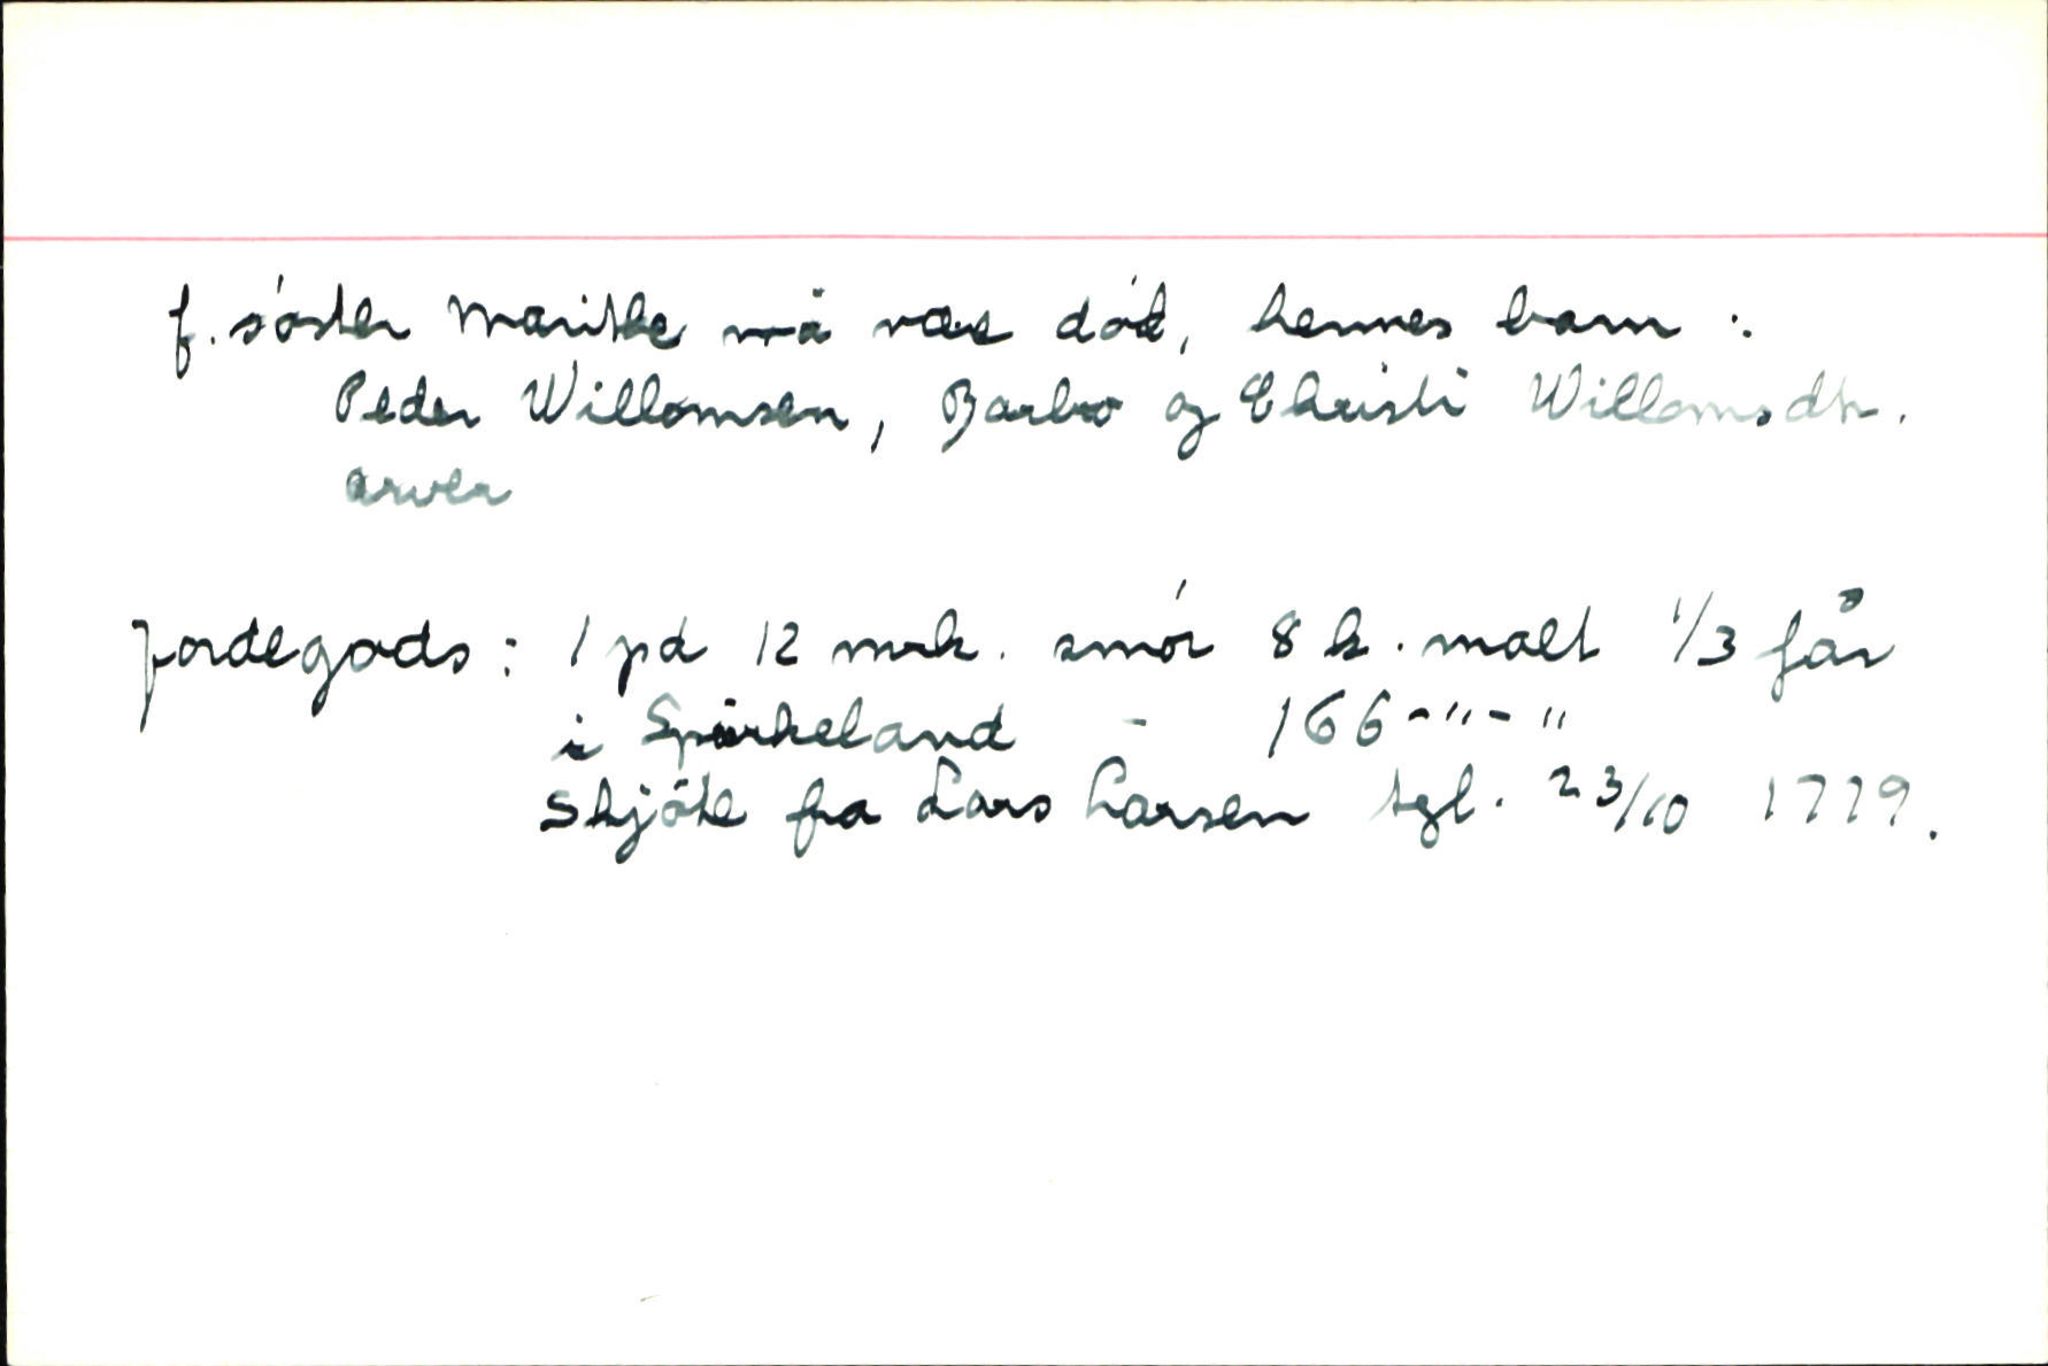 f. søster Marithe må være død, hennes barn :
Peder Willomsen, Barbro og Christi Willomsdtr.
arver
jordegods : 1 pd 12 mrk. smør 8 k. malt 1/3 får
i Spirkeland - 166 - " - "
Skjøte fra Lars Larsen tgl. 23/10 1779.